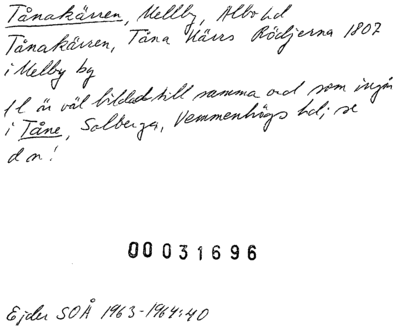 Tånakärren, Mellby, Albo hd
Tånakärren, Tåna Kärrs Rödjerna 1807
i Mellby bg
fl är väl bildad till samma ord som ingår
i Tåne, Solberga, Vemmenhögs hd; se
d n!
00031696
Ejder SOÅ 1963-1964:40